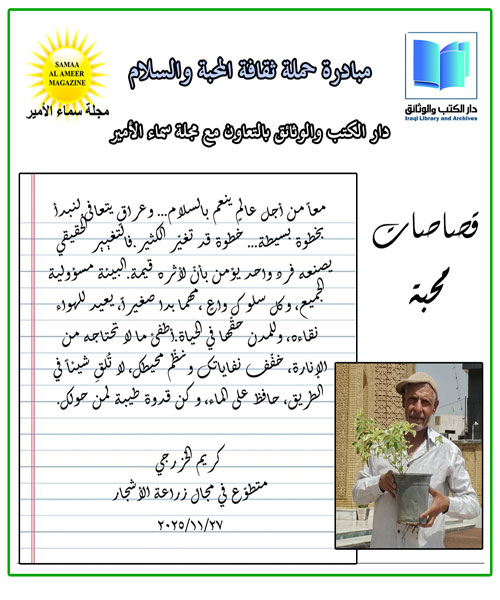 SAMAA
AL AMEER
MAGAZINE
مجلة سماء الأمير
مبادرة حملة ثقافة المحبة والسلام
دار الكتب والوثائق
Iraqi Library and Archives
دار الكتب والوثائق بالتعاون مع مجلة سماء الأمير
قصاصات
محبة
معاً من أجل عالمٍ ينعم بالسلام... وعراقٍ يتعافى لنبدأ
بخطوة بسيطة... خطوة قد تغيّر الكثير.فالتغيير الحقيقي
يصنعه فرد واحد يؤمن بأن لأثره قيمة.البيئة مسؤولية
الجميع، وكل سلوكٍ واعٍ، مهما بدا صغيراً، يعيد للهواء
نقاءه، وللمدن حقّها في الحياة.أطفئ ما لا تحتاجه من
الإنارة، خفّف نفاياتك ونظّم محيطك، لا تُلقِ شيئاً في
الطريق، حافظ على الماء، وكن قدوة طيبة لمن حولك.
كريم الخزرجي
متطوّع في مجال زراعة الأشجار
٢٠٢٥/١١/٢٧